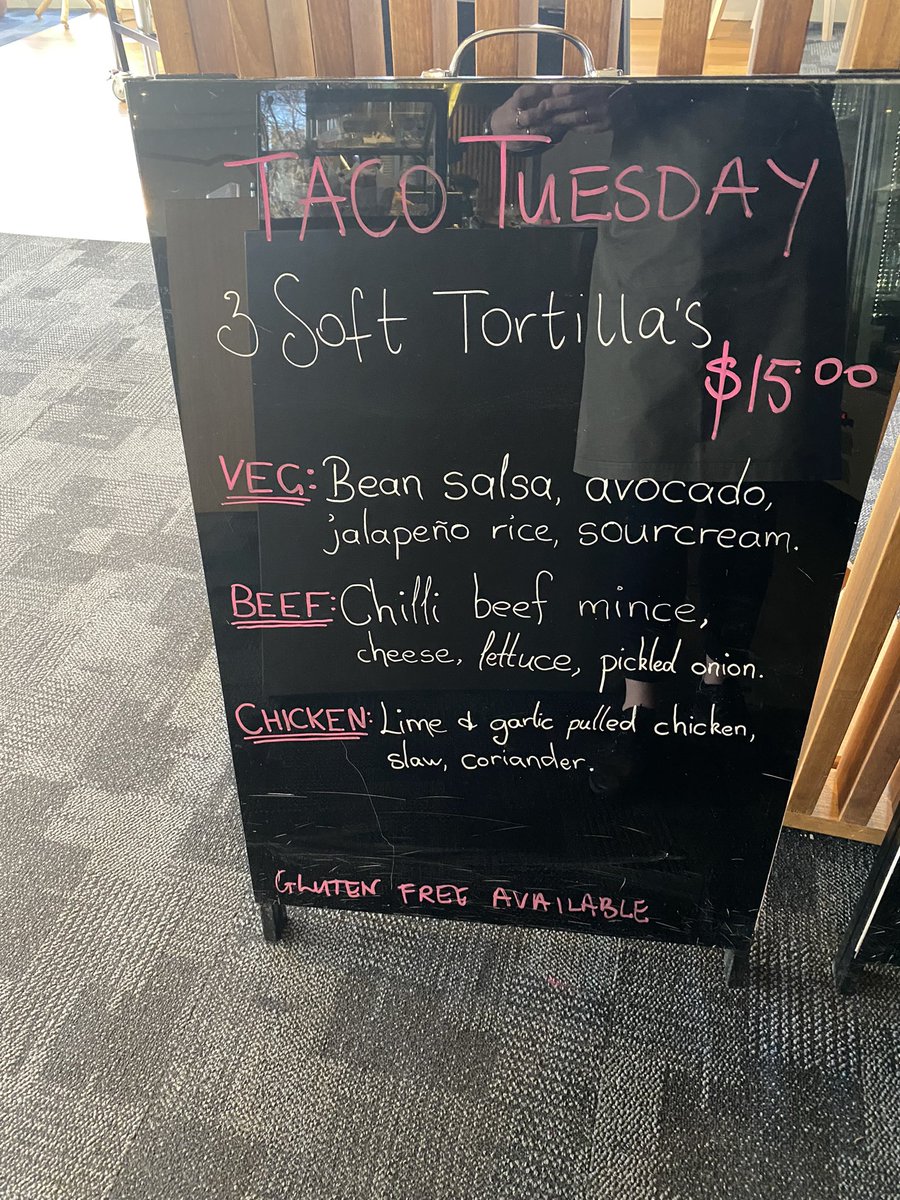 TACO TUESDAY
3 Soft Tortilla's
$15.00
VEG: Bean salsa, avocado,
jalapeño rice, sourcream.
BEEF: Chilli beef mince,
cheese, lettuce, pickled onion.
CHICKEN: Lime & garlic pulled chicken,
slaw, coriander.
GLUTEN FREE AVAILABLE